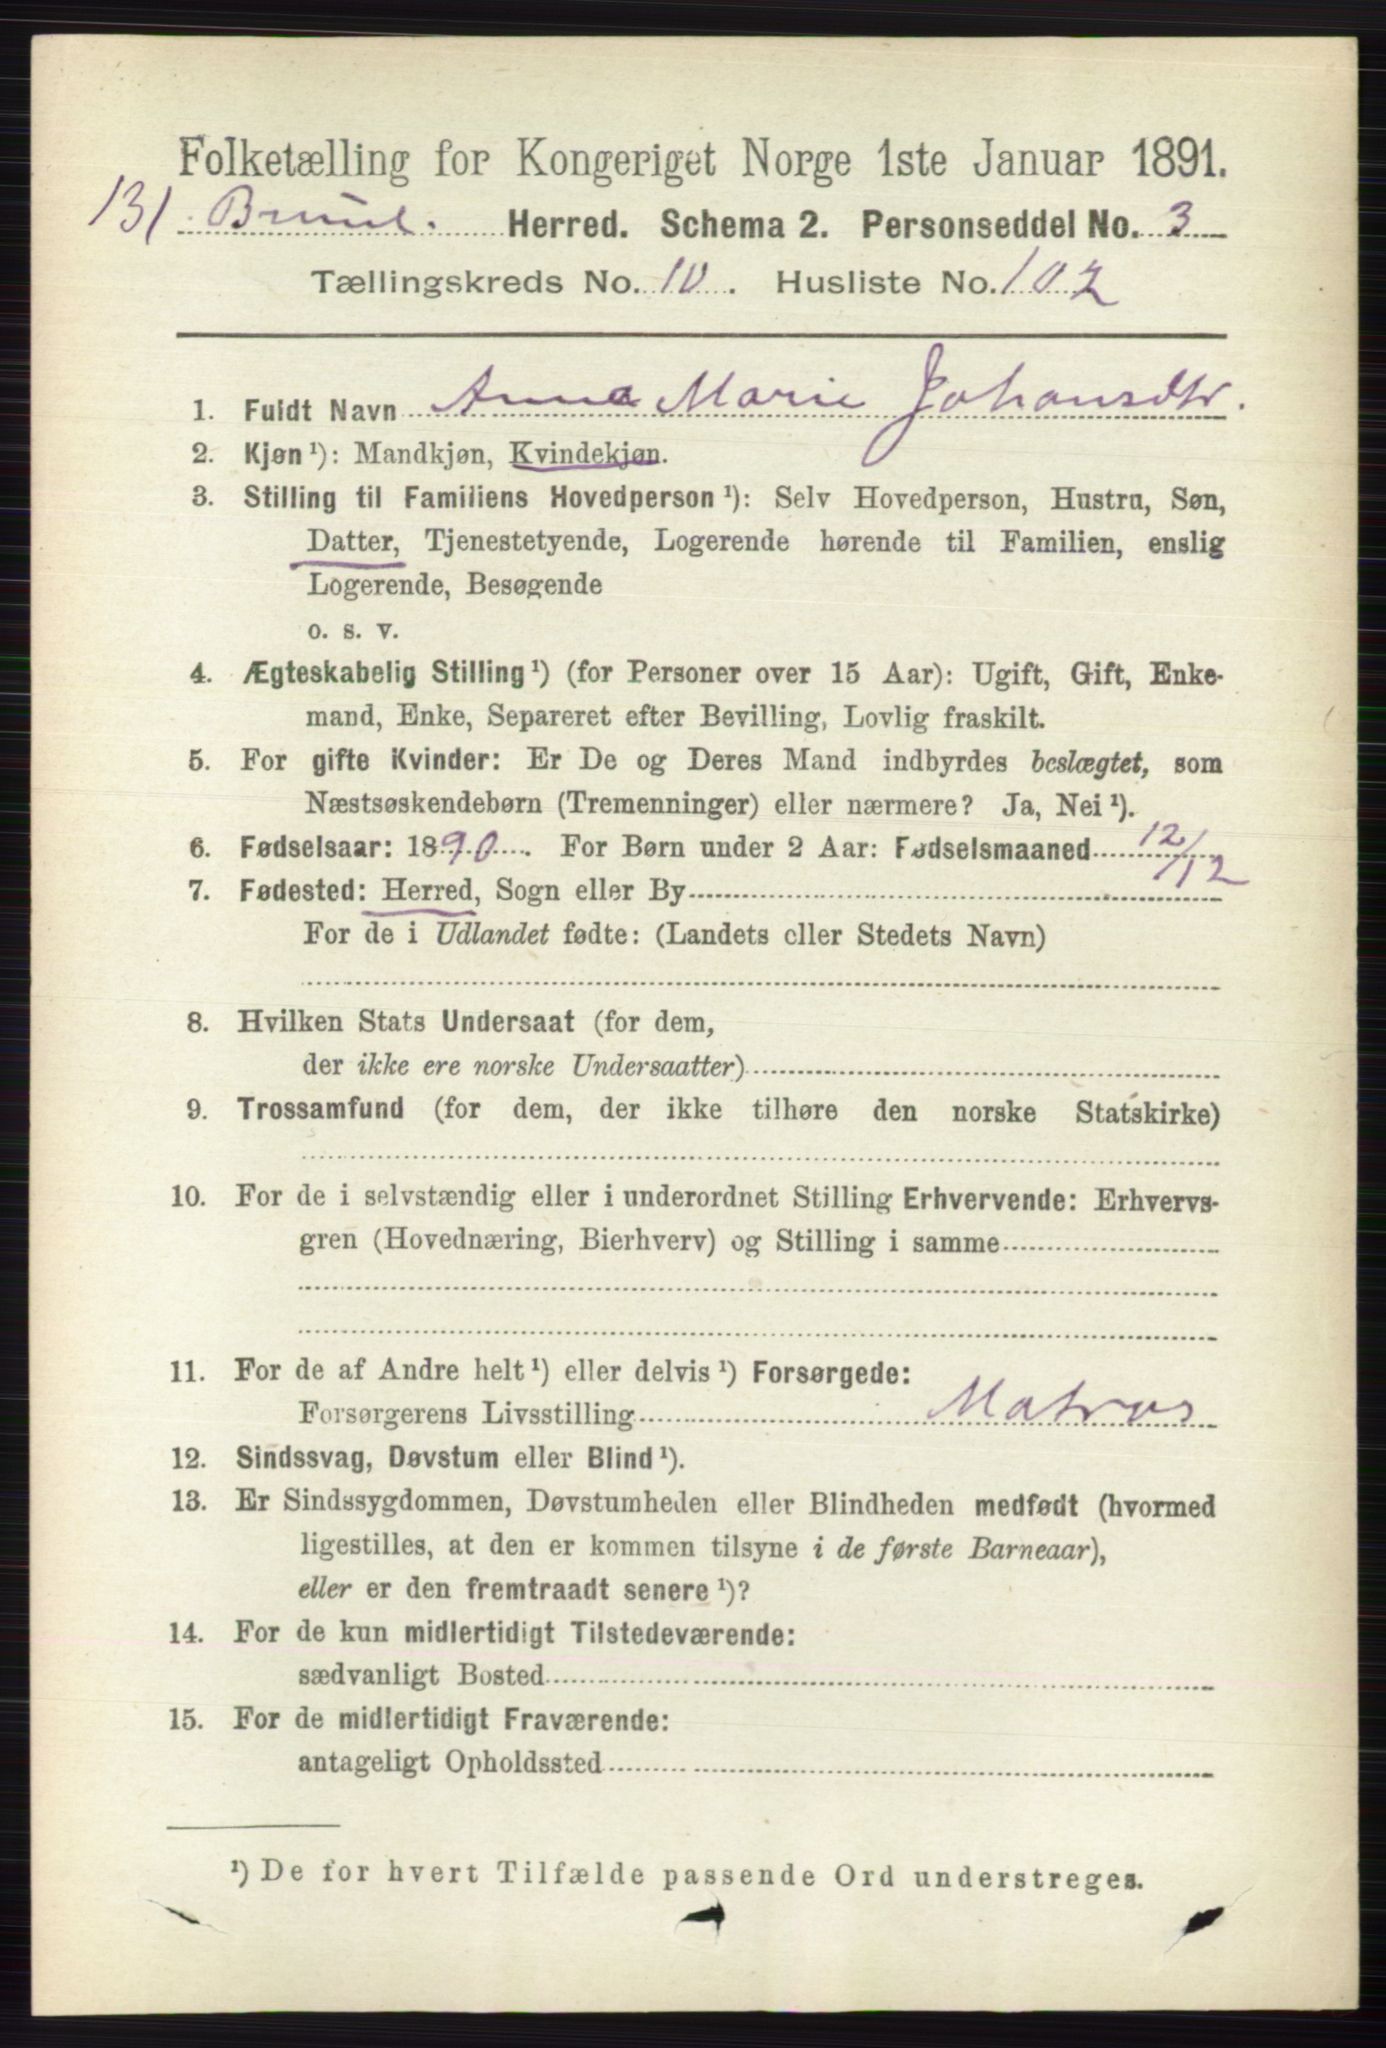 Folketælling for Kongeriget Norge 1ste Januar 1891.
131. Brunl. Herred. Schema 2. Personseddel No. 3
Tællingskreds No. 10. Husliste No. 102
1. Fuldt Navn Anna Marie Johansdtr.
2. Kjøn ¹): Mandkjøn, Kvindekjøn.
3. Stilling til Familiens Hovedperson ¹): Selv Hovedperson, Hustru, Søn,
Datter, Tjenestetyende, Logerende hørende til Familien, enslig
Logerende, Besøgende
o. s. v.
4. Ægteskabelig Stilling ¹) (for Personer over 15 Aar): Ugift, Gift, Enke-
mand, Enke, Separeret efter Bevilling, Lovlig fraskilt.
5. For gifte Kvinder: Er De og Deres Mand indbyrdes beslægtet, som
Næstsøskendebørn (Tremenninger) eller nærmere? Ja, Nei ¹).
6. Fødselsaar: 1890. For Børn under 2 Aar: Fødselsmaaned 12/12
7. Fødested: Herred, Sogn eller By
For de i Udlandet fødte: (Landets eller Stedets Navn)
8. Hvilken Stats Undersaat (for dem,
der ikke ere norske Undersaatter)
9. Trossamfund (for dem, der ikke tilhøre den norske Statskirke)
10. For de i selvstændig eller i underordnet Stilling Erhvervende: Erhvervs-
gren (Hovednæring, Bierhverv) og Stilling i samme
11. For de af Andre helt ¹) eller delvis ¹) Forsørgede:
Forsørgerens Livsstilling Matros
12. Sindssvag, Døvstum eller Blind ¹).
13. Er Sindssygdommen, Døvstumheden eller Blindheden medfødt (hvormed
ligestilles, at den er kommen tilsyne i de første Barneaar),
eller er den fremtraadt senere ¹)?
14. For de kun midlertidigt Tilstedeværende:
sædvanligt Bosted
15. For de midlertidigt Fraværende:
antageligt Opholdssted
¹) De for hvert Tilfælde passende Ord understreges.